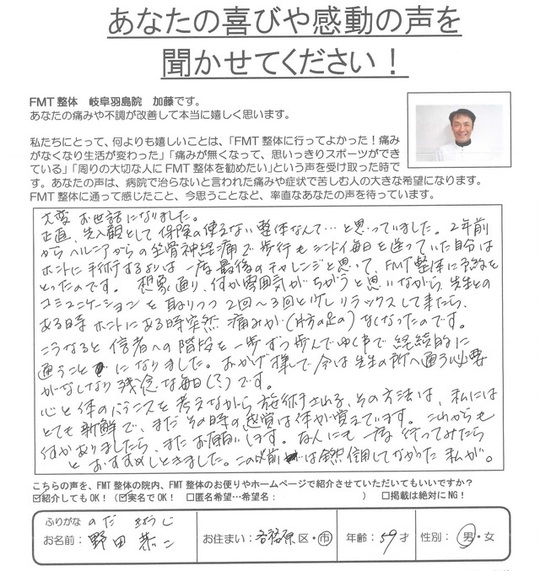 あなたの喜びや感動の声を
聞かせてください！
FMT整体 岐阜羽島院 加藤です。
あなたの痛みや不調が改善して本当に嬉しく思います。
私たちにとって、何よりも嬉しいことは、「FMT整体に行ってよかった！痛み
がなくなり生活が変わった」「痛みが無くなって、思いっきりスポーツができ
ている」「周りの大切な人にFMT整体を勧めたい」という声を受け取った時で
す。あなたの声は、病院で治らないと言われた痛みや症状で苦しむ人の大きな希望になります。
FMT整体に通って感じたこと、今思うことなど、率直なあなたの声を待っています。
大変お世話になりました。
正直、先入観として保険の使えない整体なんて…と思っていました。2年前
からヘルニアからの坐骨神経痛で歩行もシンドイ毎日を送っていた自分は
ホントに手術するよりは一度最後のチャレンジと思って、FMT整体に予約を
とったのです。想像通り、何か雰囲気がちがうと思いながら、先生との
コミュニケーションを取りつつ2回～3回と少しリラックスして来たら、
ある時ホントにある時突然痛みが(片方の足の)なくなったのです。
こうなると信者への階段を一歩ずつ歩んでゆくまで継続的に
通うことになりました。おかげ様で今は先生の所へ通う必要
がなしなり残念な毎日(？)です。
心と体のバランスを考えながら施術される、その方法は、私には
とても新鮮で、まだその時の感覚は体が覚えています。これからも
何かありましたら、またお願いします。友人にも一度行ってみたら
とおすすめしときました。この以前は全然信用してなかった私が。
こちらの声を、FMT整体の院内、FMT整体のお便りやホームページで紹介させていただいてもいいですか？
☑紹介してもOK！（☑実名でOK！ □匿名希望…希望名： ） □掲載は絶対にNG！
ふりがな のだ きょうじ
お名前： 野田 恭二 お住まい：各務原 区・市 年齢：59才 性別：男・女